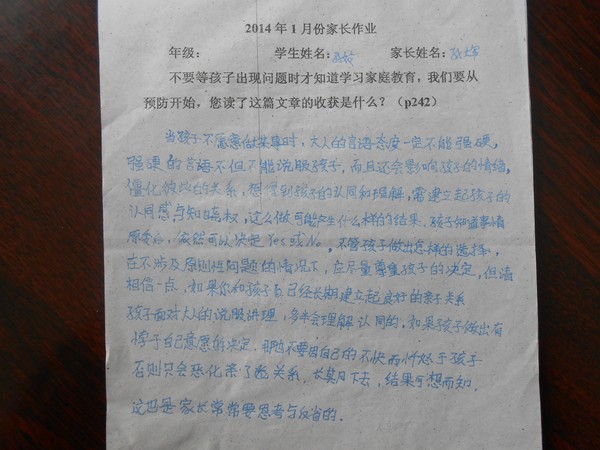 2014年1月份家长作业
年级： 学生姓名： 家长姓名：
不要等孩子出现问题时才知道学习家庭教育，我们要从
预防开始，您读了这篇文章的收获是什么？（p242）
当孩子不愿意做某事时，大人的言语态度一定不能强硬，
强硬的言语不但不能说服孩子，而且还会影响孩子的情绪，
僵化彼此的关系，想得到孩子的认同和理解，需建立起孩子的
认同感与知晓权，这么做可能产生什么样的结果，孩子知道事情
原委后，依然可以决定Yes或No。不管孩子做出怎样的选择，
在不涉及原则性问题的情况下，应尽量尊重孩子的决定，但请
相信一点，如果你和孩子已经长期建立起良好的亲子关系
孩子面对大人的说服讲理，多半会理解认同的，如果孩子做出有
悖于自己意愿的决定，那也不要因自己的不快而忤怒于孩子
否则只会恶化亲子关系，长期下去，结果可想而知。
这也是家长常常要思考与反省的。